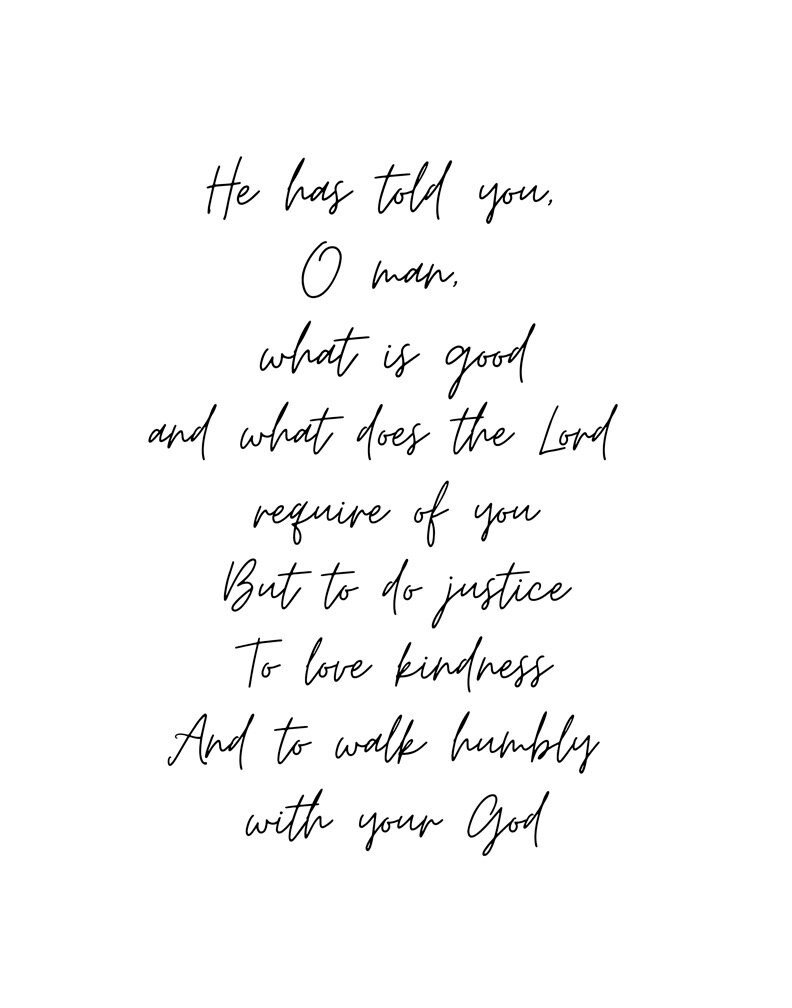 He has told you,
O man,
what is good
and what does the Lord
require of you
But to do justice
To love kindness
And to walk humbly
with your God